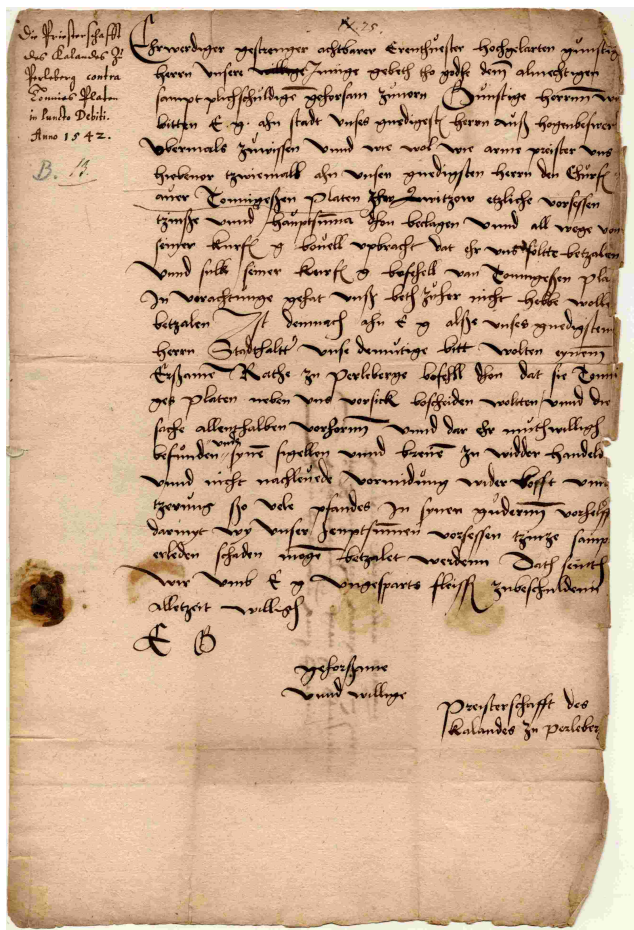 IX. 25.
Die Priesterschafft
des Kalandes Zu
Perleberg contra
Tonnies Platen
in Puncto Debiti.
Anno 1542.
B. 13.
Ehrwerdiger gestrenger achtbarer Erenthuester hochgelarten gunstig
herrn unsere Innige gebeth tho godt dem almechtigen
sampt plichschuldigen gehorsam zuuorn Gunstige herrnn
bitten E. g. ahn stadt unses gnedigest herrn auß hogenbeswer
Abermals zuwissen Unnd wie wol wie arme preister uns
hiebeuor tzwiemall ahn unsen gnedigsten herrn den Churf
auer Tonnigeßen Platen Quitzow etzliche vorsessen
tzinße unnd hauptsuma dhon beclagen unnd all wege von
seiner kurf g beuell upbracht dat ehr uns solte betzalen
Unnd sulk seiner kurf g befehll van Tonnigeßen Pla
In vorachtunge gehat unß beth zuher nicht hebbe wolle
betzalen Ist demnach ahn E g alße unses gnedigsten
herrn Stadthaltt unse demutige bitt wolten eynem
Erßame Rathe zu Perleberge befehll dhon dat sie Tonni
ges Platen neben uns vorsick bescheiden woltten unnd die
sache allenthalben vorhornn unnd dar ehr muthwilligh
befunden unnd synen sigellen unnd breuen zu widder handeld
unnd nicht nachleuede vormidung wider
tzerung sso vele pfandes In synen guderenn vorhelff
darmyt wy unser heuptsummen vorsessen tzinze samp
erleden schaden mogen betzalet werdenn Dath seinth
Wir umb E g ungesparts fleisß zubeschuldenn
alletzeit willigh
E G
gehorsame
unnd willige
Preisterschafft des
Kalandes zu Perleber